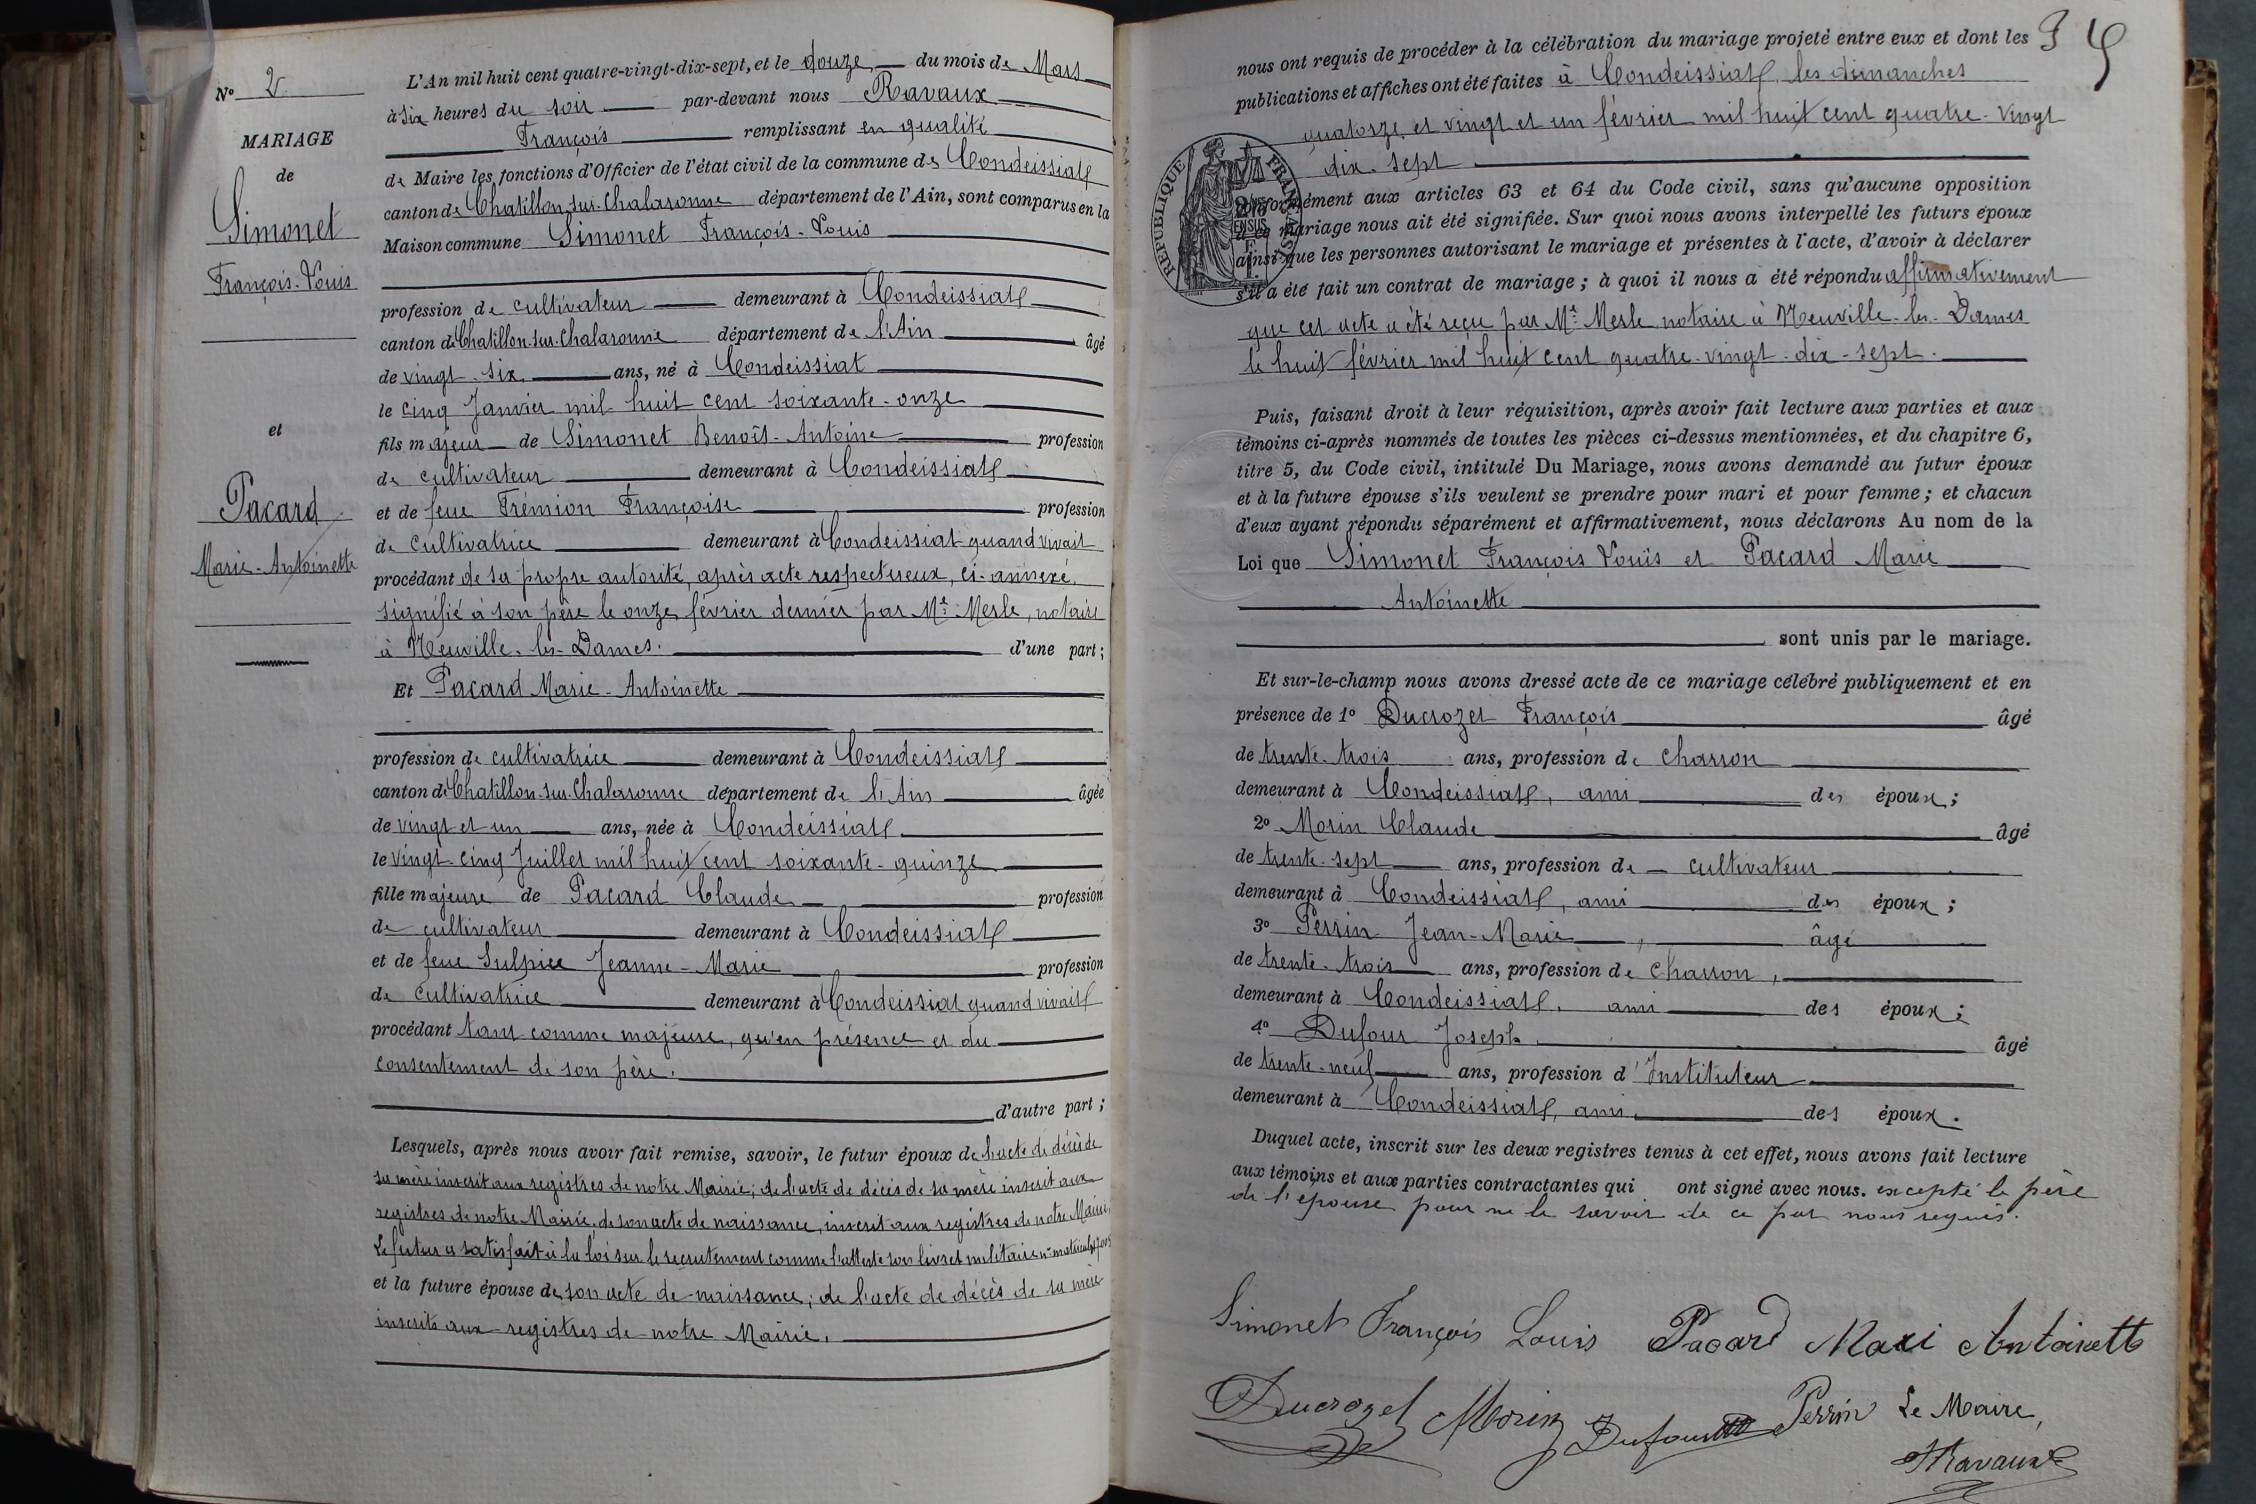 N° 2
MARIAGE
de
Simonet
François-Louis
et
Pacard
Marie-Antoinette
L'An mil huit cent quatre-vingt-dix-sept, et le douze du mois de Mars
à six heures du soir par-devant nous Ravaux
François remplissant en qualité
de Maire les fonctions d'Officier de l'état civil de la commune de Condeissiat
canton de Chatillon-sur-Chalaronne département de l'Ain, sont comparus en la
Maison commune Simonet François-Louis
profession de cultivateur demeurant à Condeissiat
canton de Chatillon-sur-Chalaronne département de l'Ain âgé
de vingt-six ans, né à Condeissiat
le cinq Janvier mil huit cent soixante-onze
fils majeur de Simonet Benoît-Antoine profession
de cultivateur demeurant à Condeissiat
et de feue Trémion Françoise profession
de cultivatrice demeurant à Condeissiat quand vivait
procédant de sa propre autorité, après acte respectueux, ci-annexé,
signifié à son père le onze février dernier par Me Merle, notaire
à Neuville-les-Dames. d'une part;
Et Pacard Marie-Antoinette
profession de cultivatrice demeurant à Condeissiat
canton de Chatillon-sur-Chalaronne département de l'Ain âgée
de vingt et un ans, née à Condeissiat
le vingt-cinq Juillet mil huit cent soixante-quinze
fille majeure de Pacard Claude profession
de cultivateur demeurant à Condeissiat
et de feue Sulpice Jeanne-Marie profession
de cultivatrice demeurant à Condeissiat quand vivait
procédant tant comme majeure, qu'en présence et du
consentement de son père.
d'autre part;
Lesquels, après nous avoir fait remise, savoir, le futur époux de l'acte de décès de
sa mère inscrit aux registres de notre Mairie; de l'acte de décès de sa mère inscrit aux
registres de notre Mairie, de son acte de naissance, inscrit aux registres de notre Mairie,
Le futur a satisfait à la loi sur le recrutement comme l'atteste son livret militaire n° matricule
et la future épouse de son acte de naissance; de l'acte de décès de sa mère
inscrits aux registres de notre Mairie.
nous ont requis de procéder à la célébration du mariage projeté entre eux et dont les
publications et affiches ont été faites à Condeissiat les dimanches
quatorze et vingt et un février mil huit cent quatre-vingt
dix-sept
REPUBLIQUE FRANÇAISE
conformément aux articles 63 et 64 du Code civil, sans qu'aucune opposition
à ce mariage nous ait été signifiée. Sur quoi nous avons interpellé les futurs époux
ainsi que les personnes autorisant le mariage et présentes à l'acte, d'avoir à déclarer
s'il a été fait un contrat de mariage; à quoi il nous a été répondu affirmativement
que cet acte a été reçu par Me Merle notaire à Neuville-les-Dames
le huit février mil huit cent quatre-vingt-dix-sept.
Puis, faisant droit à leur réquisition, après avoir fait lecture aux parties et aux
témoins ci-après nommés de toutes les pièces ci-dessus mentionnées, et du chapitre 6,
titre 5, du Code civil, intitulé Du Mariage, nous avons demandé au futur époux
et à la future épouse s'ils veulent se prendre pour mari et pour femme; et chacun
d'eux ayant répondu séparément et affirmativement, nous déclarons Au nom de la
Loi que Simonet François Louis et Pacard Marie
Antoinette
sont unis par le mariage.
Et sur-le-champ nous avons dressé acte de ce mariage célébré publiquement et en
présence de 1° Ducrozet François âgé
de trente-trois ans, profession de charron
demeurant à Condeissiat, ami des époux;
2° Morin Claude âgé
de trente-sept ans, profession de cultivateur
demeurant à Condeissiat, ami des époux;
3° Perrin Jean-Marie, âgé
de trente-trois ans, profession de charron,
demeurant à Condeissiat, ami des époux;
4° Dufour Joseph âgé
de trente-neuf ans, profession d'Instituteur
demeurant à Condeissiat, ami des époux.
Duquel acte, inscrit sur les deux registres tenus à cet effet, nous avons fait lecture
aux témoins et aux parties contractantes qui ont signé avec nous. excepté le père
de l'épouse pour ne le savoir de ce par nous requis.
Simonet François Louis Pacard Mari Antoinette
Ducrozet Morin Dufour Perrin Le Maire,
Ravaux